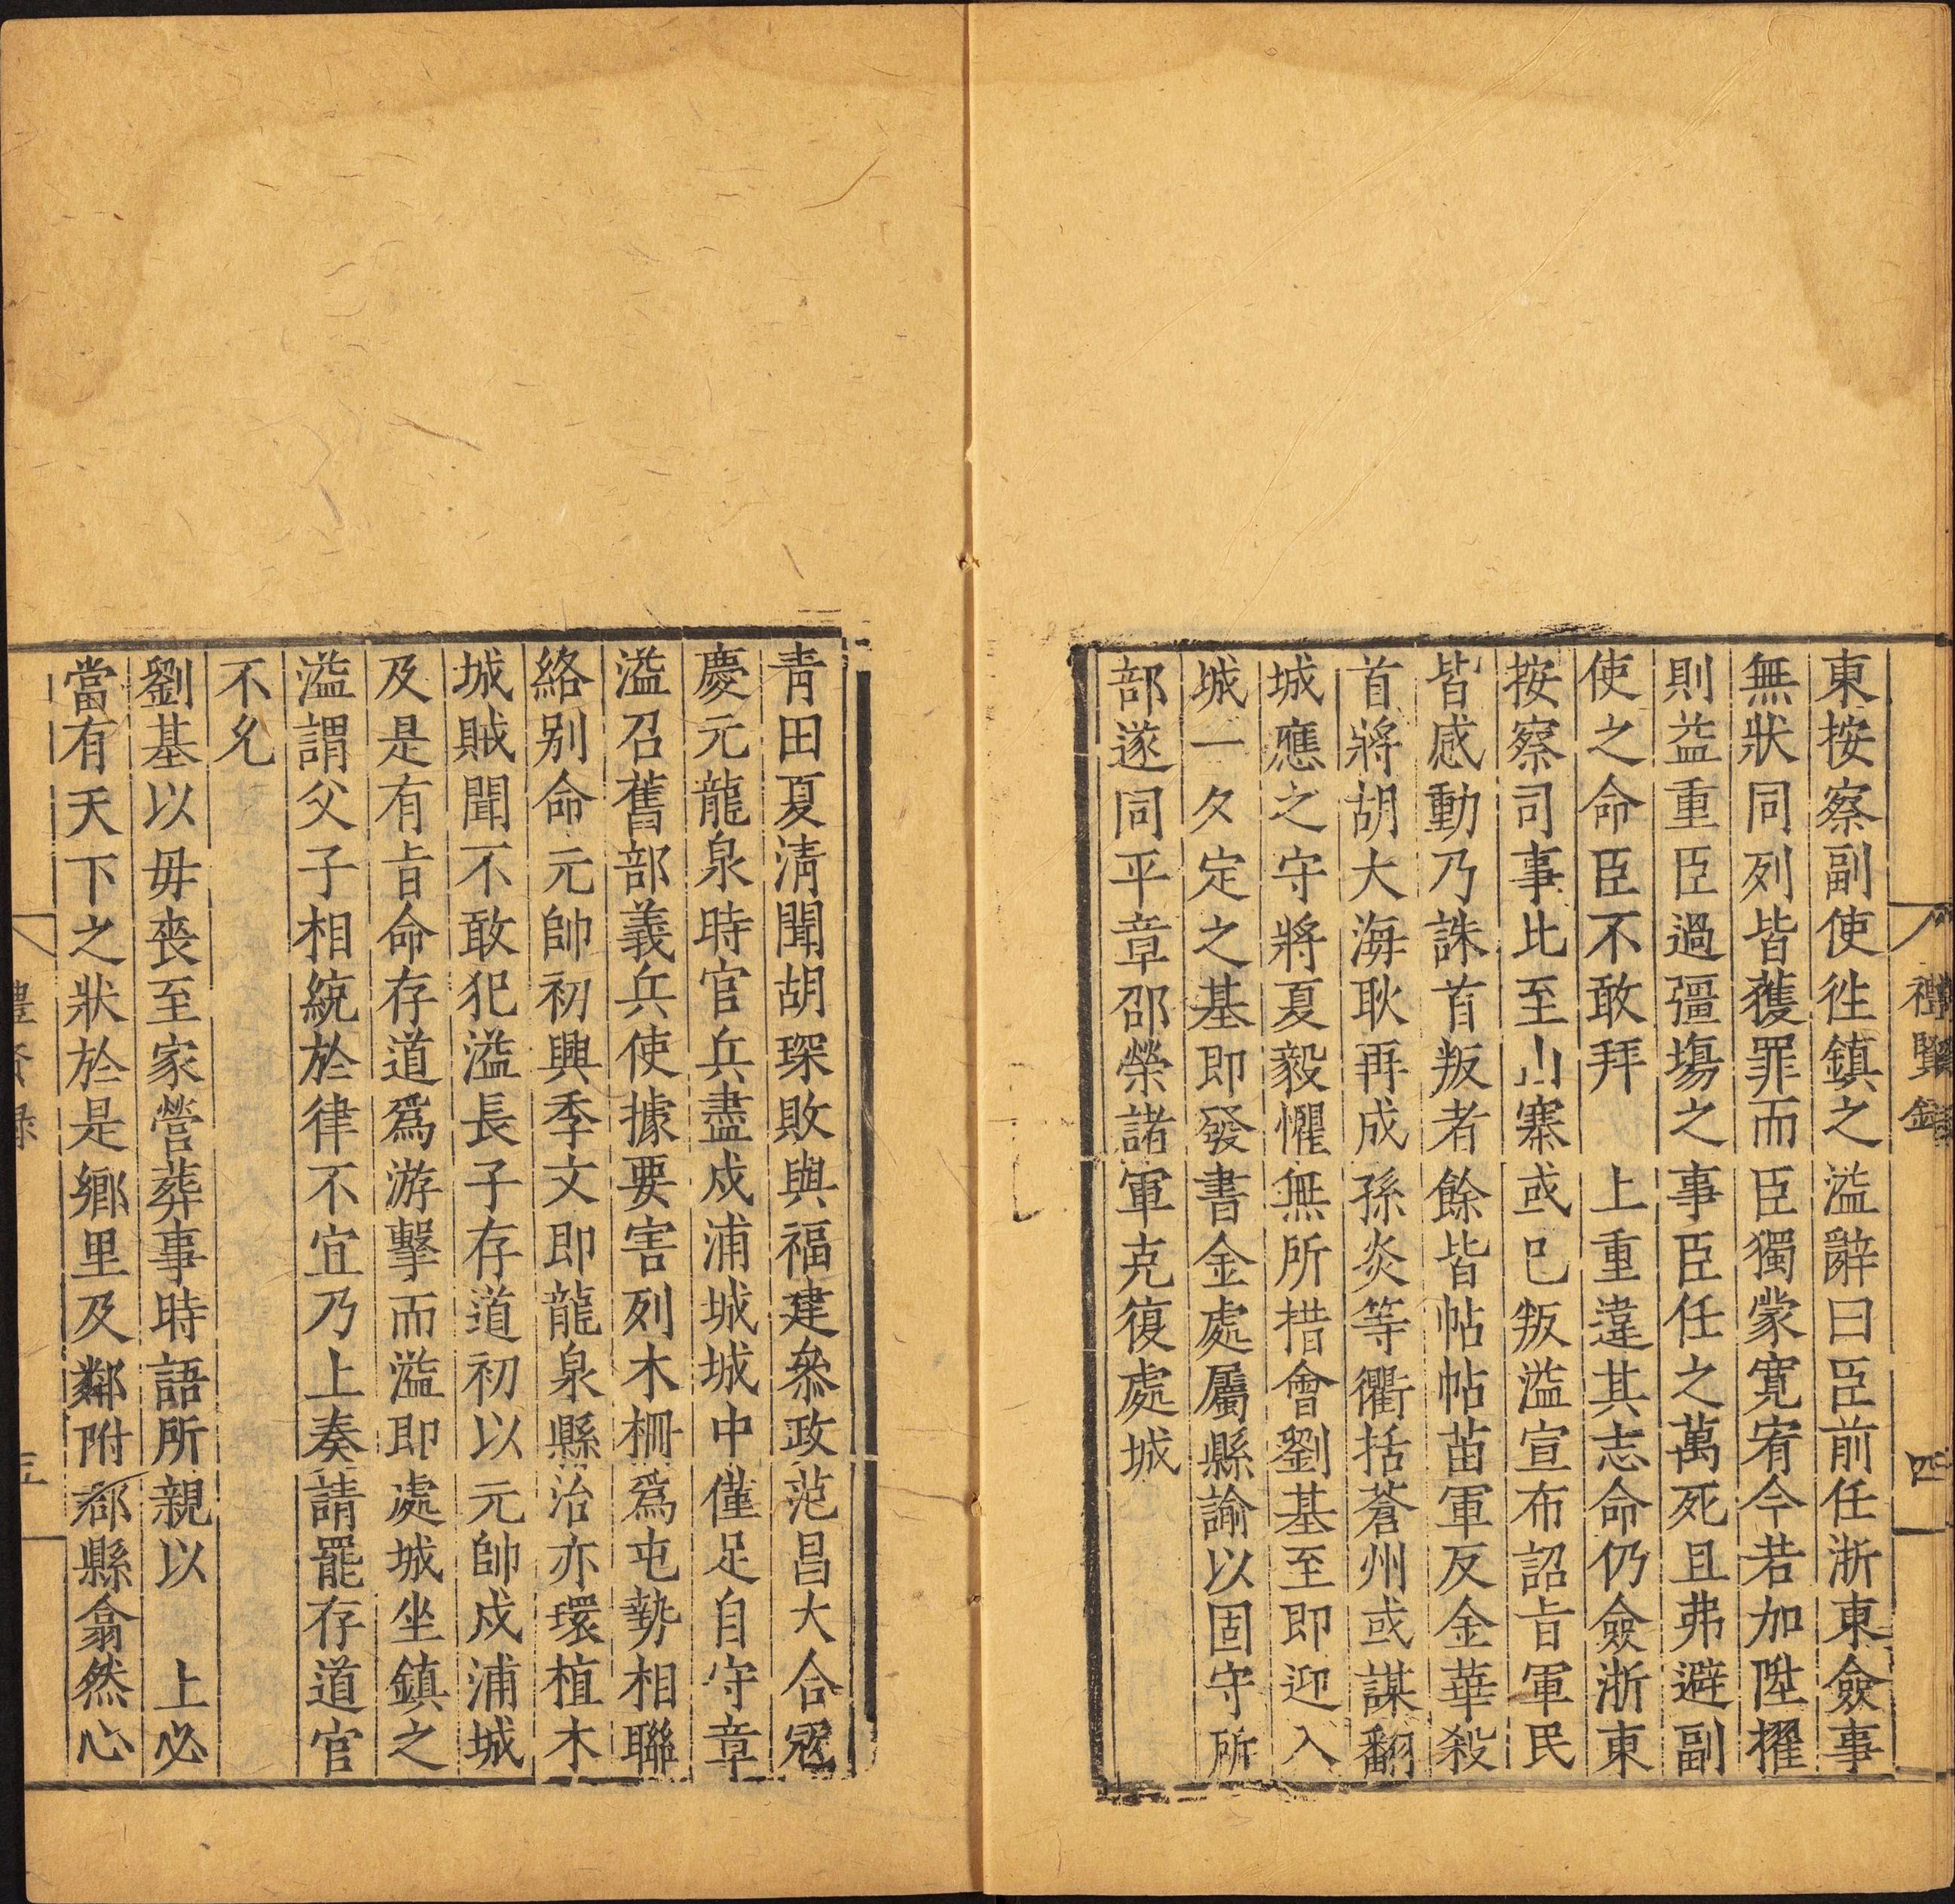 禮賢録
四
東按察副使徃鎮之溢辭曰臣前任浙東僉事
無狀同列皆獲罪而臣獨蒙寛宥今若加陞擢
則益重臣過彊塲之事臣任之萬死且弗避副
使之命臣不敢拜上重違其志命仍僉浙東
按察司事比至山寨或巳叛溢宣布詔㫖軍民
皆感動乃誅首叛者餘皆帖帖苗軍反金華殺
首將胡大海耿再成孫炎等衢括蒼州或謀翻
城應之守將夏毅懼無所措會劉基至即迎入
城一夕定之基即發書金處屬縣諭以固守所
部遂同平章邵榮諸軍克復處城
青田夏清聞胡琛敗與福建叅政范昌大合冦
慶元龍泉時官兵盡戍浦城城中僅足自守章
溢召舊部義兵使據要害列木柵爲屯勢相聯
絡别命元帥初興季文即龍泉縣治亦環植木
城賊聞不敢犯溢長子存道初以元帥戍浦城
及是有㫖命存道爲游擊而溢即處城坐鎮之
溢謂父子相統於律不宜乃上奏請罷存道官
不允
劉基以毋丧至家營葬事時語所親以上必
當有天下之狀於是鄉里及鄰附郡縣翕然心
禮賢録
五